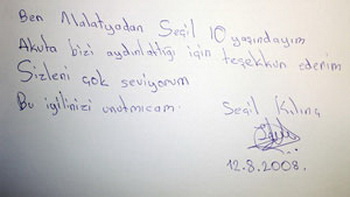 Ben Malatyadan Seçil 10 yaşındayım
Akuta bizi aydınlattığı için teşekkür ederim
Sizleri çok seviyorum
Bu iyilinizi unutmıcam. Seçil Kılınç
12.8.2008.